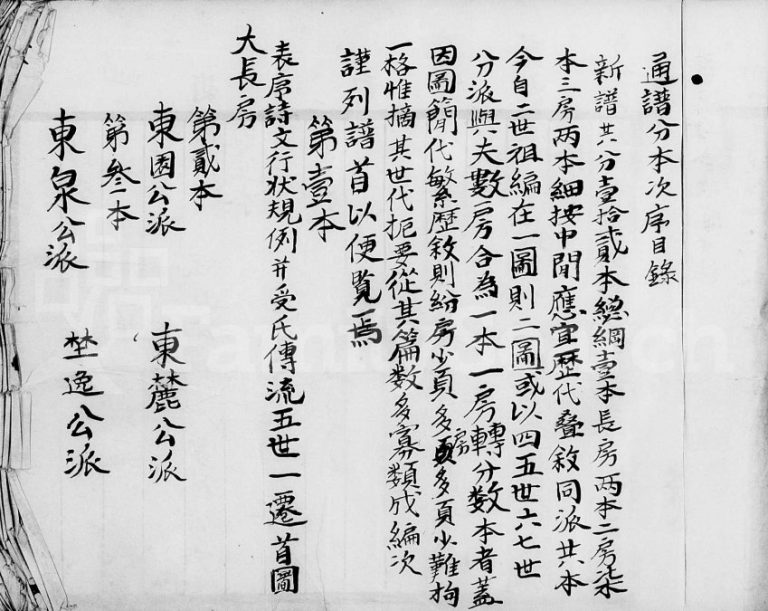 通譜分本次序目錄
新譜共分壹拾貳本總綱壹本長房两本二房柒
本三房两本細按中間應宜歷代叠敘同派共本
今自二世祖編在一圖則二圖或以四五世六七世
分派與夫數房合為一本一房轉分數本者蓋
因圖簡代繁歷敘則紛房少頁多房多頁少難拘
一格惟摘其世代扼要從其篇数多寡類成編次
謹列譜首以便覧焉
第壹本
表序詩文行状規例并受氏傳流五世一遷首圖
大長房
第貳本
東園公派 東麓公派
第叁本
東泉公派 埜逸公派